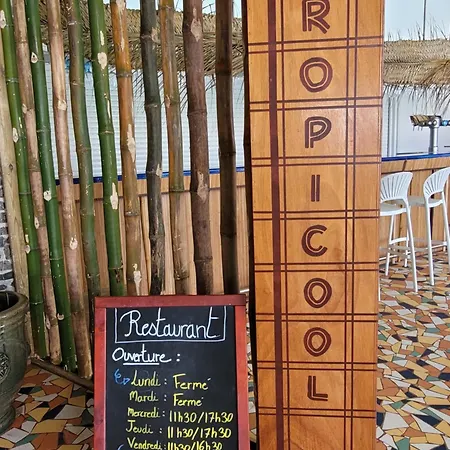 ROPICOOL
Restaurant
Ouverture :
Lundi : Fermé
Mardi : Fermé
Mercredi : 11h30/17h30
Jeudi : 11h30/17h30
Vendredi : 11h30/16h30